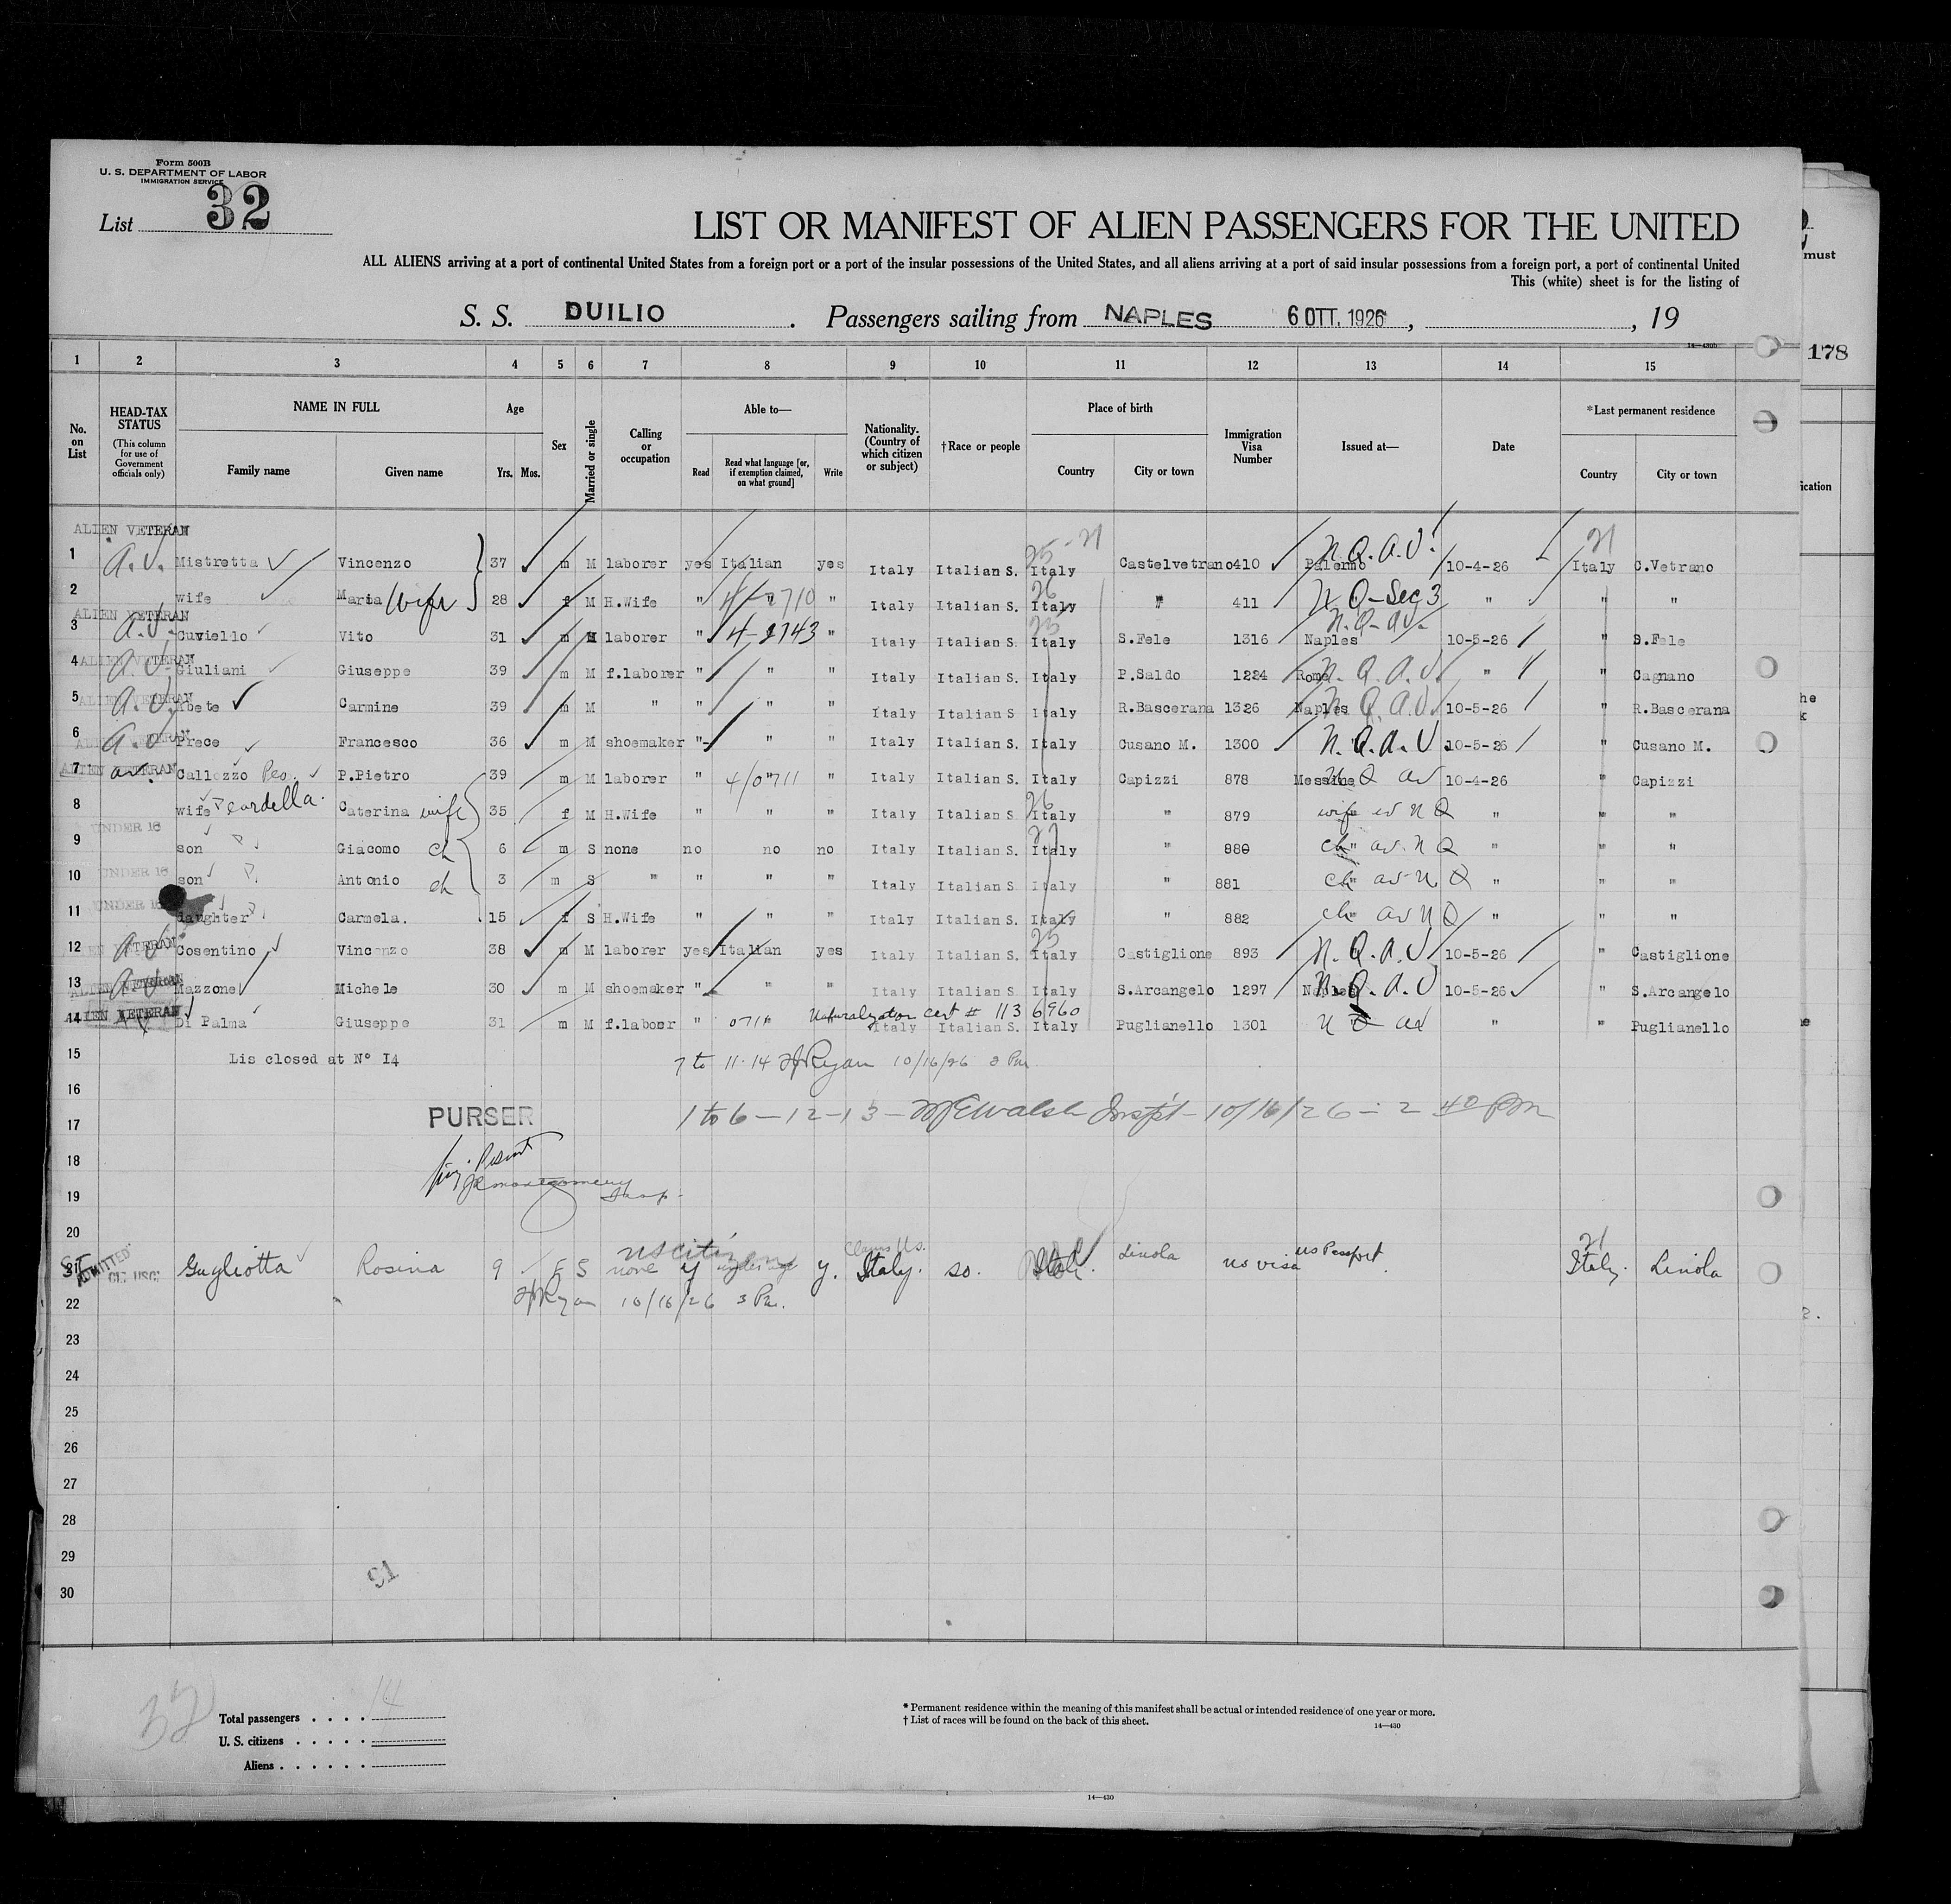 Form 500B
U. S. DEPARTMENT OF LABOR
IMMIGRATION SERVICE
List 32
LIST OR MANIFEST OF ALIEN PASSENGERS FOR THE UNITED
ALL ALIENS arriving at a port of continental United States from a foreign port or a port of the insular possessions of the United States, and all aliens arriving at a port of said insular possessions from a foreign port, a port of continental United
This (white) sheet is for the listing of
must
S. S. DUILIO. Passengers sailing from NAPLES 6 OTT. 1926, , 19
14—430b
178
1 2 3 4 5 6 7 8 9 10 11 12 13 14 15
No. on List
HEAD-TAX STATUS (This column for use of Government officials only)
NAME IN FULL
Family name Given name
Age
Yrs. Mos.
Sex
Married or single
Calling or occupation
Able to—
Read Read what language [or, if exemption claimed, on what ground] Write
Nationality. (Country of which citizen or subject)
†Race or people
Place of birth
Country City or town
Immigration Visa Number
Issued at—
Date
*Last permanent residence
Country City or town
ication
ALIEN VETERAN 25 - 21 N.Q.A.V. 21
1 A.V. Mistretta Vincenzo 37 m M laborer yes Italian yes Italy Italian S. Italy Castelvetrano 410 Palermo 10-4-26 Italy C.Vetrano
2 wife Maria wife 28 f M H.Wife " 4-2710 " Italy Italian S. 26 Italy " 411 N Q-Sec 3 " " "
ALIEN VETERAN 25 N.Q-AV.
3 A.V. Cuviello Vito 31 m M laborer " 4-2743 " Italy Italian S. Italy S.Fele 1316 Naples 10-5-26 " S.Fele
4 ALIEN VETERAN A.V. Giuliani Giuseppe 39 m M f.laborer " " " Italy Italian S. Italy P.Saldo 1224 Rome N. Q. A. V. " " Cagnano
5 ALIEN VETERAN A.V. Abete Carmine 39 m M " " " " Italy Italian S Italy R.Bascerana 1326 Naples N. Q. A. V. 10-5-26 " R.Bascerana
6 ALIEN VETERAN A.V. Prece Francesco 36 m M shoemaker " " " Italy Italian S. Italy Cusano M. 1300 N. Q. A. V. 10-5-26 " Cusano M.
7 ALIEN VETERAN av. Callozzo P.Pietro 39 m M laborer " 4/0711 " Italy Italian S. Italy Capizzi 878 Messina N Q av 10-4-26 " Capizzi
8 wife Caterina wife 35 f M H.Wife " " " Italy Italian S. 26 Italy " 879 wife av N Q " " "
UNDER 16
9 son Giacomo ch 6 m S none no no no Italy Italian S. Italy " 880 ch av. N Q " " "
10 UNDER 16 son Antonio ch 3 m S " " " " Italy Italian S Italy " 881 ch av N Q " " "
UNDER 16
11 daughter Carmela. 15 f S H.Wife " " " Italy Italian S. Italy " 882 ch av N Q " " "
12 ALIEN VETERAN A.V. Cosentino Vincenzo 38 m M laborer yes Italian yes Italy Italian S. 25 Italy Castiglione 893 N. Q. A. V 10-5-26 " Castiglione
13 ALIEN VETERAN A.V. Mazzone Michele 30 m M shoemaker " " " Italy Italian S. Italy S.Arcangelo 1297 Naples N. Q. A. V 10-5-26 " S.Arcangelo
Naturalization cert # 113 6960
14 ALIEN VETERAN Di Palma Giuseppe 31 m M f.laboer " 0711 Italy Italian S. Italy Puglianello 1301 N Q av " " Puglianello
15 Lis closed at Nº I4 7 to 11-14 Ryan 10/16/26 3 Pm
16
17 PURSER 1 to 6 - 12-13 - Walsh Inspt - 10/16/26 - 2 40 PM
18
19 Montgomery Insp.
20
ADMITTED US citizen Claims U.S. US Passport 21
Gugliotta Rosina 9 F S none y under age y. Italy. so. Italy. Linola no visa Italy. Linola
22 Ryan 10/16/26 3 Pm.
23
24
25
26
27
28
29
30
Total passengers 14
U. S. citizens
Aliens
32
* Permanent residence within the meaning of this manifest shall be actual or intended residence of one year or more.
† List of races will be found on the back of this sheet.
14—430
14—430